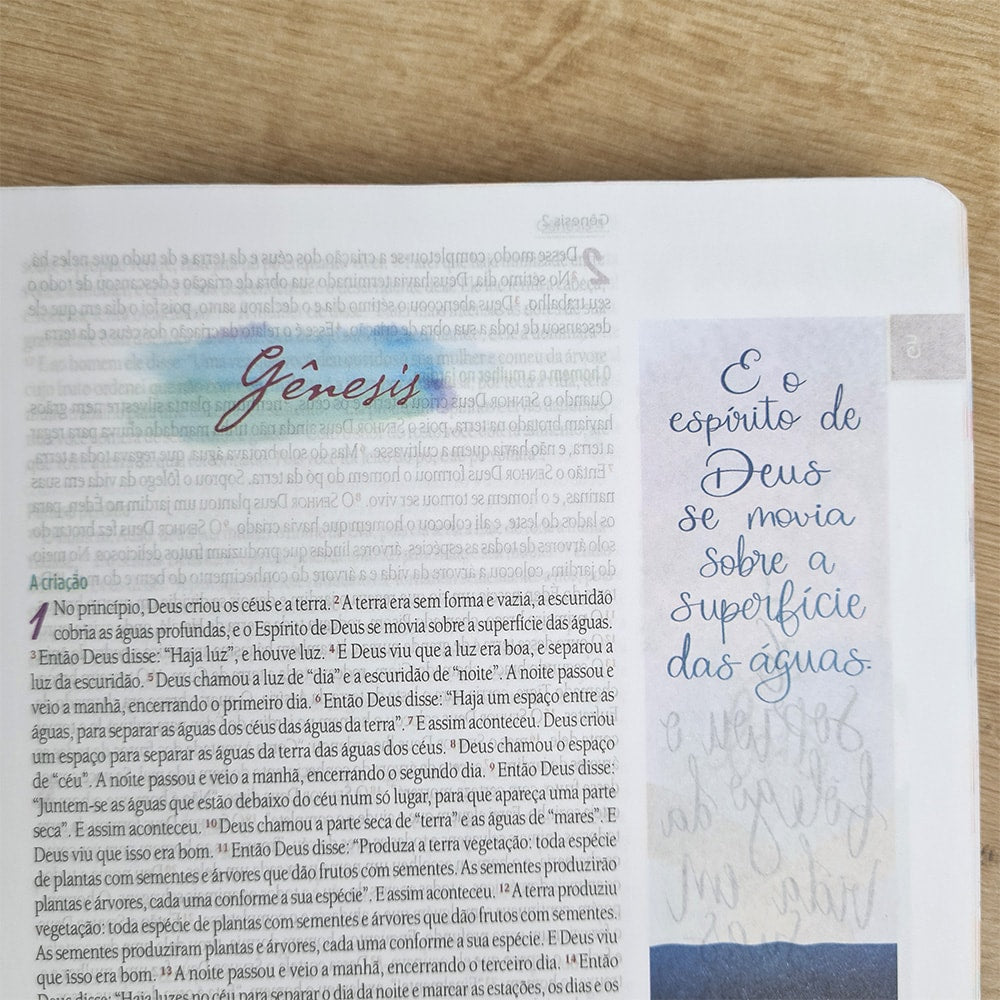 Gênesis
A criação
1 No princípio, Deus criou os céus e a terra. 2 A terra era sem forma e vazia, a escuridão
cobria as águas profundas, e o Espírito de Deus se movia sobre a superfície das águas.
3 Então Deus disse: “Haja luz”, e houve luz. 4 E Deus viu que a luz era boa, e separou a
luz da escuridão. 5 Deus chamou a luz de “dia” e a escuridão de “noite”. A noite passou e
veio a manhã, encerrando o primeiro dia. 6 Então Deus disse: “Haja um espaço entre as
águas, para separar as águas dos céus das águas da terra”. 7 E assim aconteceu. Deus criou
um espaço para separar as águas da terra das águas dos céus. 8 Deus chamou o espaço
de “céu”. A noite passou e veio a manhã, encerrando o segundo dia. 9 Então Deus disse:
“Juntem-se as águas que estão debaixo do céu num só lugar, para que apareça uma parte
seca”. E assim aconteceu. 10 Deus chamou a parte seca de “terra” e as águas de “mares”. E
Deus viu que isso era bom. 11 Então Deus disse: “Produza a terra vegetação: toda espécie
de plantas com sementes e árvores que dão frutos com sementes. As sementes produzirão
plantas e árvores, cada uma conforme a sua espécie”. E assim aconteceu. 12 A terra produziu
vegetação: toda espécie de plantas com sementes e árvores que dão frutos com sementes.
As sementes produziram plantas e árvores, cada uma conforme a sua espécie. E Deus viu
que isso era bom. 13 A noite passou e veio a manhã, encerrando o terceiro dia. 14 Então
Deus disse: “Haja luzes no céu para separar o dia da noite e marcar as estações, os dias e os
E o
espírito de
Deus
se movia
sobre a
superfície
das águas.